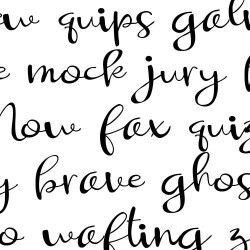 ew quips gal
e mock jury
Now fax quiz
y brave ghos
o wafting z